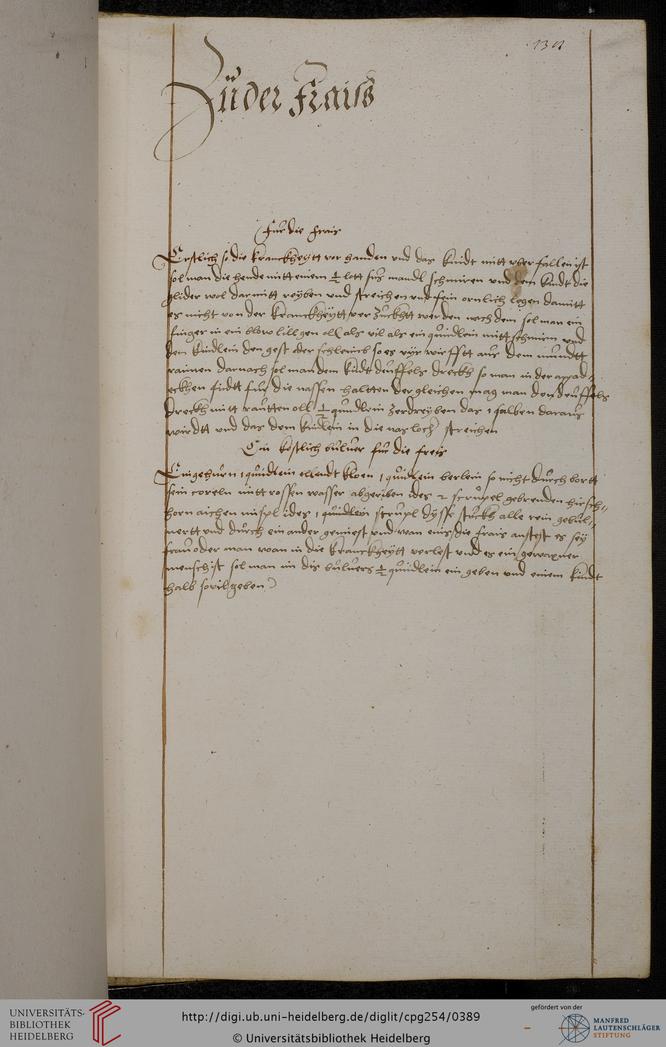 131
Zu der Fraiss
Für die frais
Erstlich so die Kranckheytt vor handen vnd das Kindt mitt vber fallen ist
sol man die hende mitt einem ½ lott süs mandl schmiren vnd dem Kindt die
glider wol darmitt reyben vnd streichen vnd fein ornlich legen damitt
es nicht von der Kranckheytt ver zuckhtt werden noch dem sol man ein
finger in ein blow lillgen oll als vil als ein quindlein mitt schmirn vnd
den Kindlein den gest oder schleimb so es vyr wirfftt aus dem mundtt
raimen darnach sol man dem Kindt deuffels dreckh so man in der appad-
eckhen findtt für die nassen haltten der gleichen mag man den deuffels
dreckh mitt rautten oll ½ quindlein zerdreyben das 1 salben daraus
wirdtt vnd das dem Kindlein in die nas loch streichen
Ein köstlich buluer für die freis
Eingehürn 1 quindlein ellendt kloen 1 quindlein berlein so nicht durch bortt
sein coreln mitt rossen wasser abgeriben ides 2 scrupel gebrenden hirsch-
horn aichen mispl ides 1 quindlein scrupl dysse stuckh alle rein gebul-
uertt vnd durch ein ander gemischt vnd wan eins die frais anstost es sey
frau oder man wan in die kranckheytt verlest vnd es ein gewaxner
mensch ist sol man im dis buluers ½ quindlein ein geben vnd einem kindt
halb souil geben
UNIVERSITÄTS-
BIBLIOTHEK
HEIDELBERG
http://digi.ub.uni-heidelberg.de/diglit/cpg254/0389
© Universitätsbibliothek Heidelberg
gefördert von der
MANFRED
LAUTENSCHLÄGER
STIFTUNG